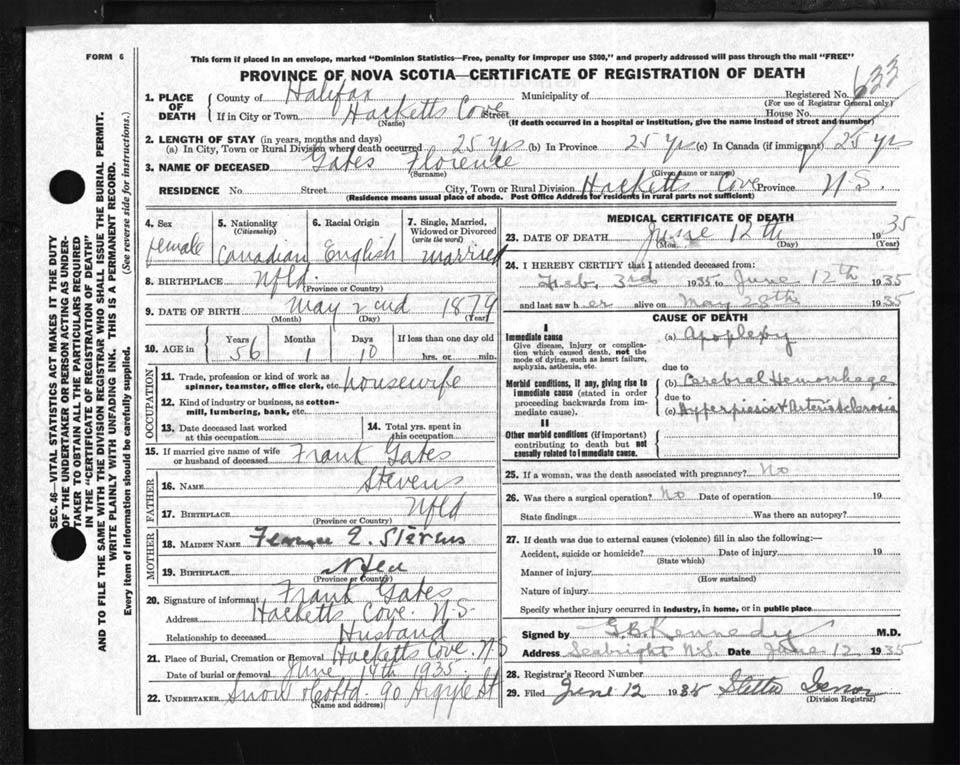 FORM 6
This form if placed in an envelope, marked "Dominion Statistics—Free, penalty for improper use $300," and properly addressed will pass through the mail "FREE"
PROVINCE OF NOVA SCOTIA—CERTIFICATE OF REGISTRATION OF DEATH
633
1. PLACE OF DEATH
County of Halifax Municipality of Registered No.
(For use of Registrar General only)
If in City or Town Hacketts Cove Street House No.
(Name) (If death occurred in a hospital or institution, give the name instead of street and number)
2. LENGTH OF STAY (in years, months and days)
(a) In City, Town or Rural Division where death occurred 25 yrs (b) In Province 25 yrs (c) In Canada (if immigrant) 25 yrs
3. NAME OF DECEASED Gates Florence
(Surname) (Given name or names)
RESIDENCE No. Street City, Town or Rural Division Hacketts Cove Province N.S.
(Residence means usual place of abode. Post Office Address for residents in rural parts not sufficient)
4. Sex female
5. Nationality (Citizenship) Canadian
6. Racial Origin English
7. Single, Married, Widowed or Divorced (write the word) married
8. BIRTHPLACE Nfld.
(Province or Country)
9. DATE OF BIRTH May 2cnd 1879
(Month) (Day) (Year)
10. AGE in Years 56 Months 1 Days 10 If less than one day old hrs. or min.
OCCUPATION
11. Trade, profession or kind of work as spinner, teamster, office clerk, etc. housewife
12. Kind of industry or business, as cotton-mill, lumbering, bank, etc.
13. Date deceased last worked at this occupation
14. Total yrs. spent in this occupation
15. If married give name of wife or husband of deceased Frank Gates
FATHER
16. NAME Stevens
17. BIRTHPLACE Nfld
(Province or Country)
MOTHER
18. MAIDEN NAME Florence E. Stevens
19. BIRTHPLACE
(Province or Country)
20. Signature of informant Frank Gates
Address Hacketts Cove. N.S.
Relationship to deceased Husband
21. Place of Burial, Cremation or Removal Hacketts Cove. N.S
Date of burial or removal June 14th 1935
22. UNDERTAKER Snow & Co Ltd. 90 Argyle St
(Name and address)
MEDICAL CERTIFICATE OF DEATH
23. DATE OF DEATH June 12th 1935
(Mon.) (Day) (Year)
24. I HEREBY CERTIFY that I attended deceased from:
Feb. 3rd 1935 to June 12th 1935
and last saw her alive on May 28th 1935
CAUSE OF DEATH
I
Immediate cause
Give disease, injury or complication which caused death, not the mode of dying, such as heart failure, asphyxia, asthenia, etc.
(a) Apoplexy
due to
Morbid conditions, if any, giving rise to immediate cause (stated in order proceeding backwards from immediate cause).
(b) Cerebral Hemorrhage
due to
(c) Hyperpiesis & Arteriosclerosis
II
Other morbid conditions (if important) contributing to death but not causally related to immediate cause.
25. If a woman, was the death associated with pregnancy? No
26. Was there a surgical operation? No Date of operation 19
State findings Was there an autopsy?
27. If death was due to external causes (violence) fill in also the following:—
Accident, suicide or homicide? Date of injury 19
(State which)
Manner of injury
(How sustained)
Nature of injury
Specify whether injury occurred in industry, in home, or in public place
Signed by G.B. Kennedy M.D.
Address Seabright N.S. Date June 12 1935
28. Registrar's Record Number
29. Filed June 12 1935
(Division Registrar)
SEC. 46—VITAL STATISTICS ACT MAKES IT THE DUTY
OF THE UNDERTAKER OR PERSON ACTING AS UNDER-
TAKER TO OBTAIN ALL THE PARTICULARS REQUIRED
IN THE "CERTIFICATE OF REGISTRATION OF DEATH"
AND TO FILE THE SAME WITH THE DIVISION REGISTRAR WHO SHALL ISSUE THE BURIAL PERMIT.
WRITE PLAINLY WITH UNFADING INK. THIS IS A PERMANENT RECORD.
Every item of information should be carefully supplied. (See reverse side for instructions.)